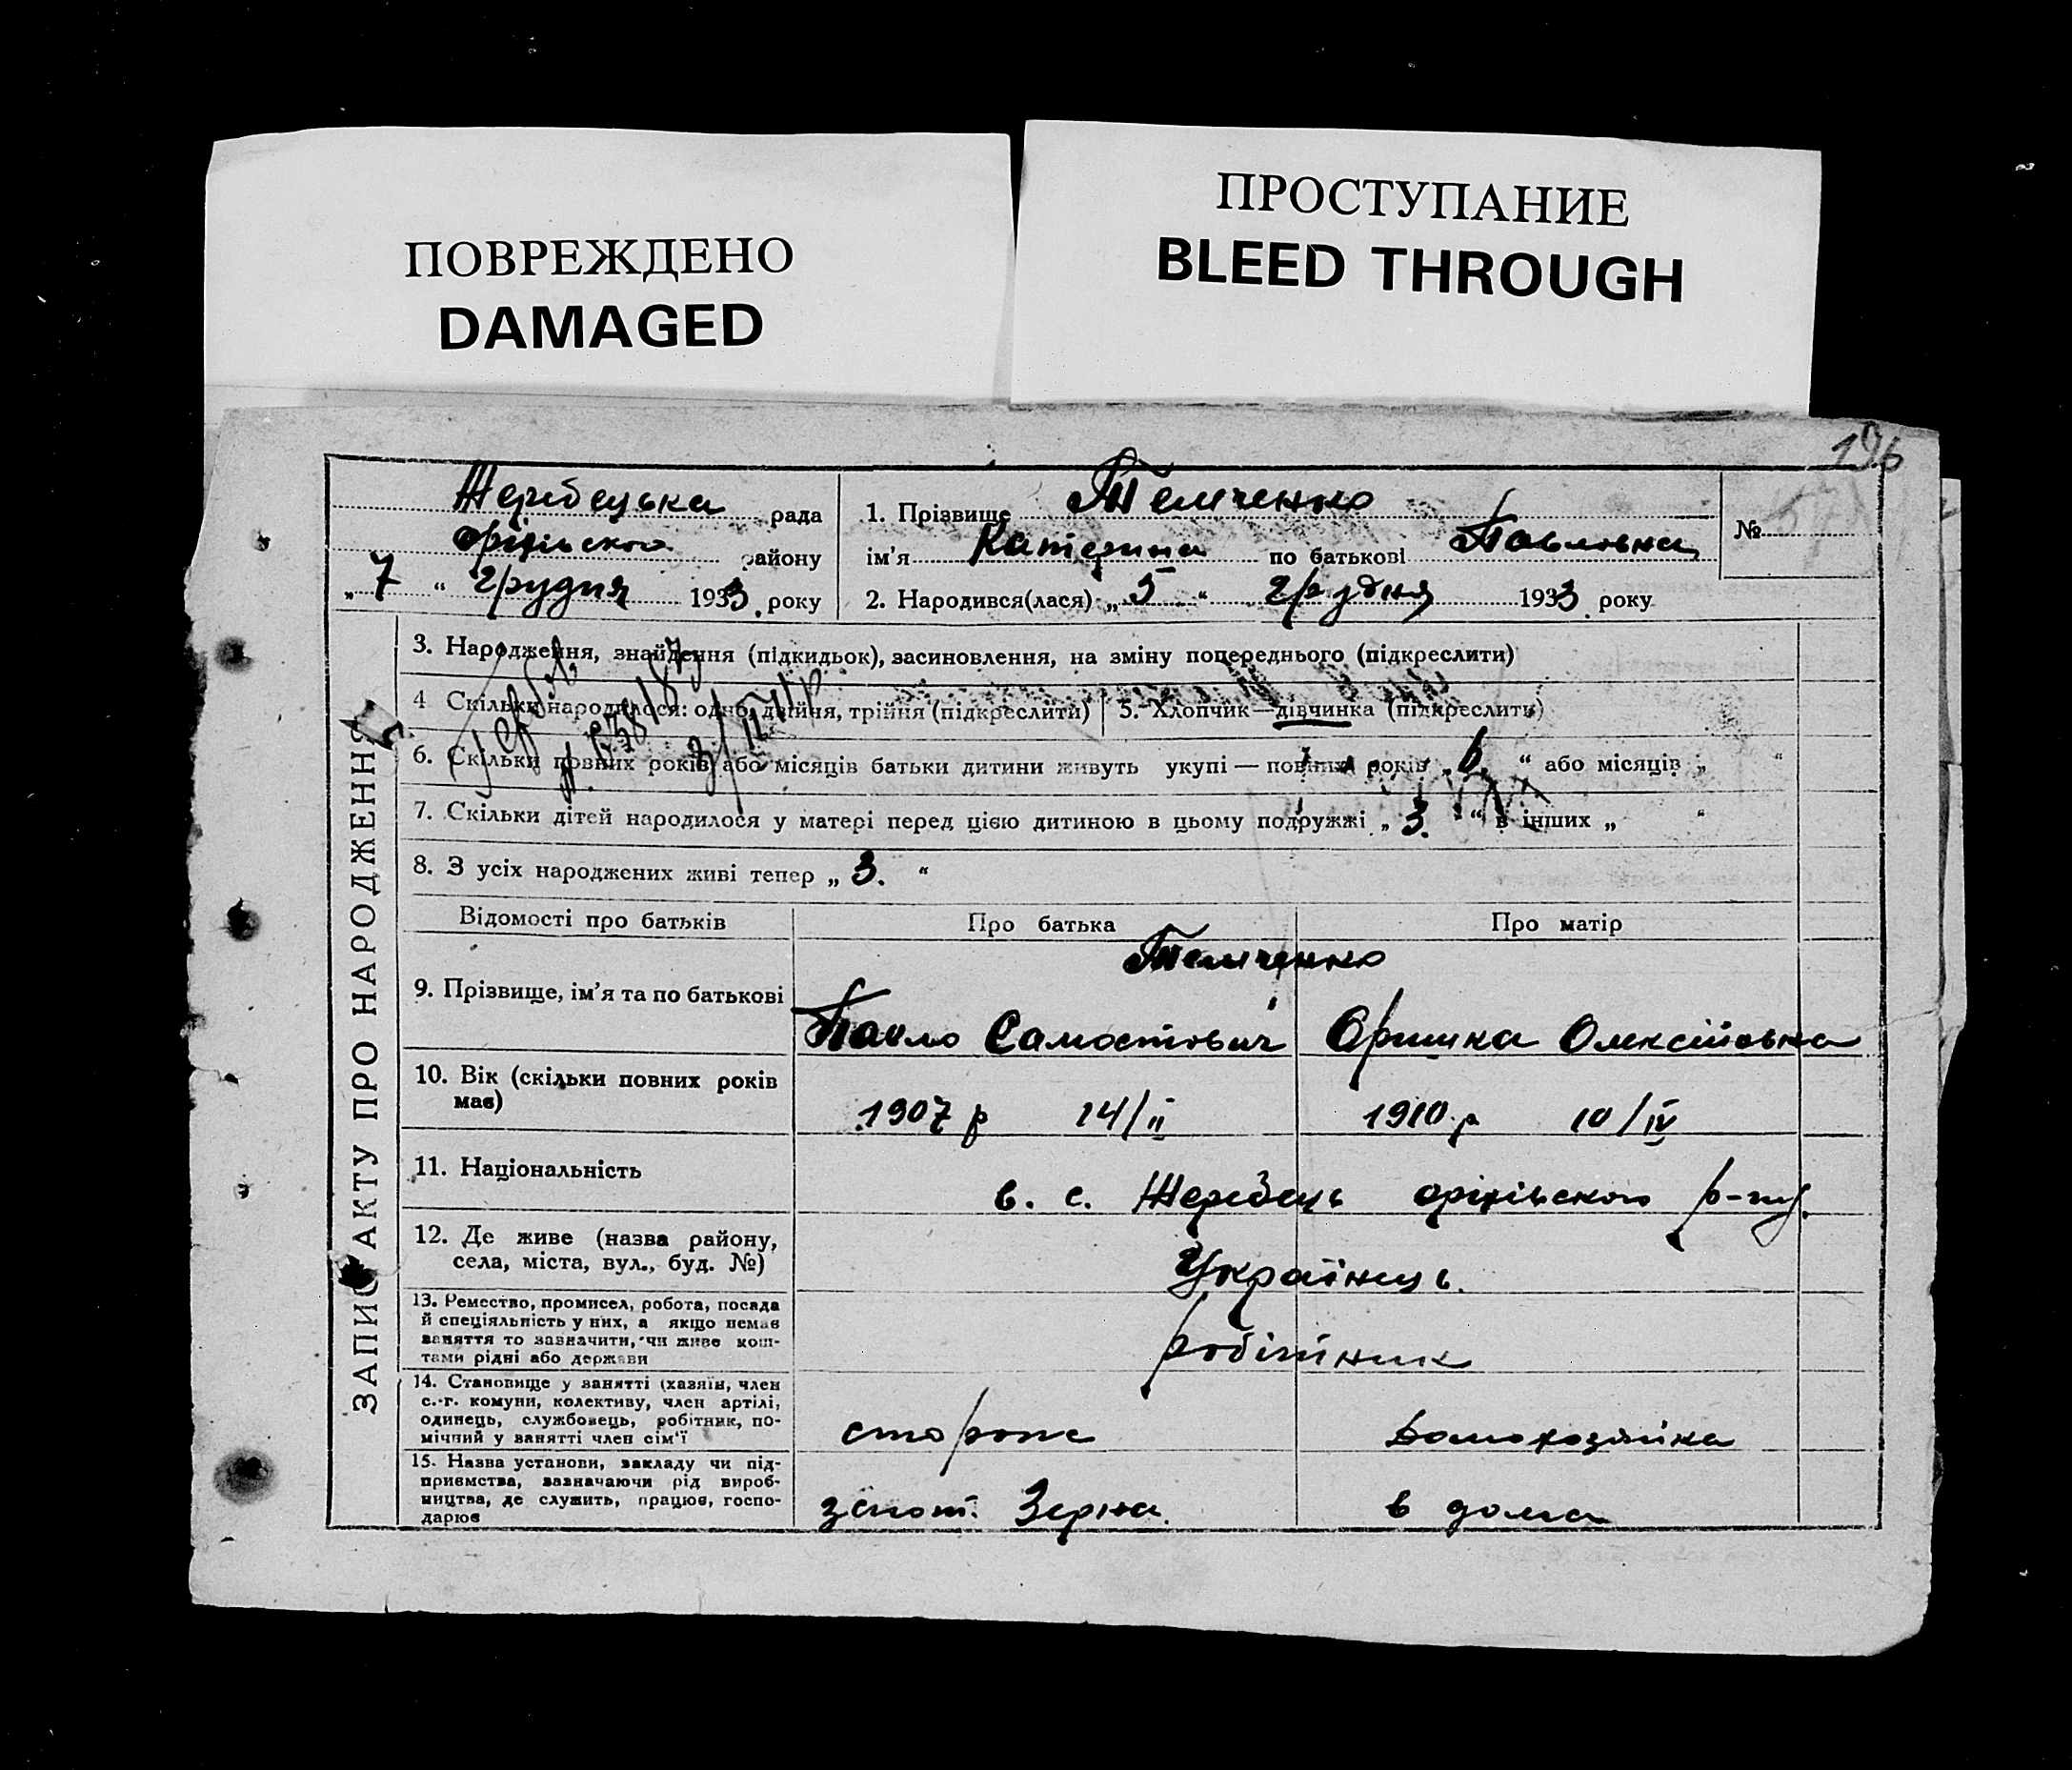 ПОВРЕЖДЕНО
DAMAGED
ПРОСТУПАНИЕ
BLEED THROUGH
196
Жеребецька рада
Оріхівського району
„ 7 “ Грудня 1933 року
1. Прізвище Темченко
ім'я Катерина по батькові Павловна
№
2. Народився(лася) „ 5 “ Грудня 1933 року
ЗАПИС АКТУ ПРО НАРОДЖЕННЯ
3. Народження, знайдення (підкидьок), засиновлення, на зміну попереднього (підкреслити)
4 Скільки народилося: одно, двійня, трійня (підкреслити) 5. Хлопчик—дівчинка (підкреслити)
6. Скільки повних років або місяців батьки дитини живуть укупі — повних років „ 6. “ або місяців „ “
7. Скільки дітей народилося у матері перед цією дитиною в цьому подружжі „ 3. “ в інших „ “
8. З усіх народжених живі тепер „ 3. “
Відомості про батьків Про батька Про матір
Темченко
9. Прізвище, ім'я та по батькові Павло Оришка Олексійовна
10. Вік (скільки повних років має) 1907 р 14/II 1910 р 10/IV
11. Національність в. с. Жеребець оріхівського р-ну.
12. Де живе (назва району, села, міста, вул., буд. №) Українець.
13. Ремество, промисел, робота, посада
й спеціяльність у них, а якщо немає
заняття то зазначити, чи живе кош-
тами рідні або держави
робітник
14. Становище у занятті (хазяїн, член
с.-г. комуни, колективу, член артілі,
одинець, службовець, робітник, по-
мічний у занятті член сім'ї
сторож домохозяйка
15. Назва установи, закладу чи під-
приємства, зазначаючи рід вироб-
ництва, де служить, працює, госпо-
дарює
Зерна. в дома